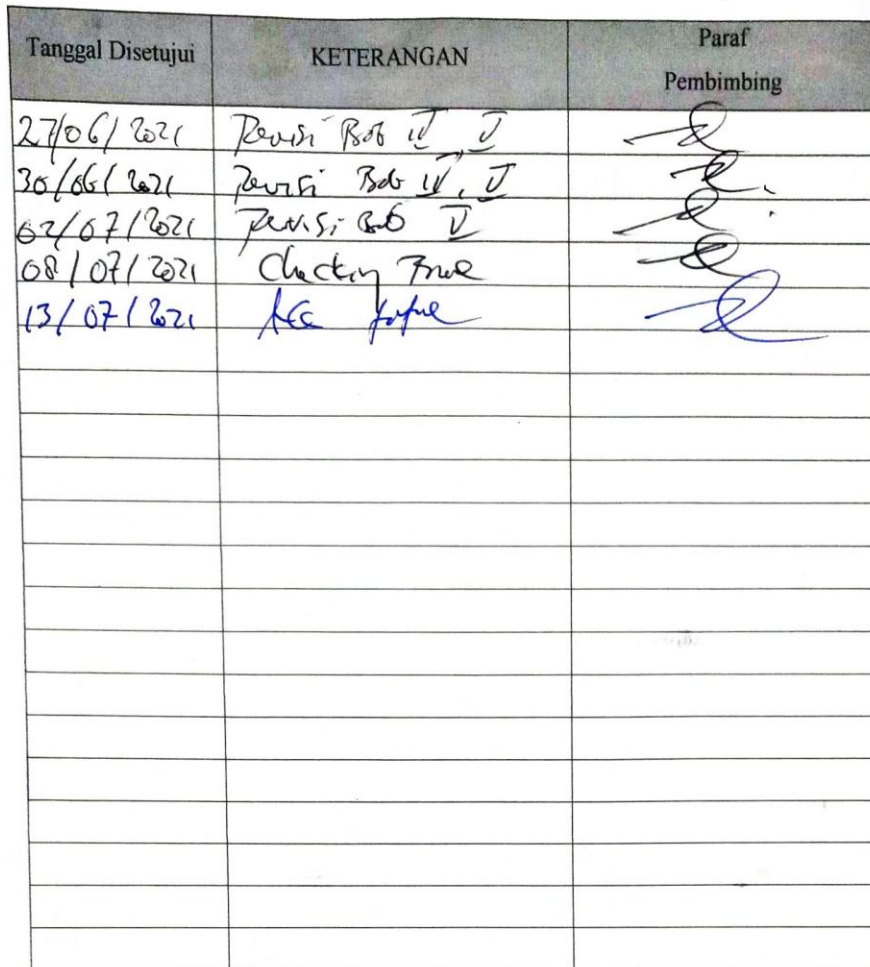 Tanggal Disetujui KETERANGAN Paraf
Pembimbing
27/06/2021 Revisi Bab IV, V
30/06/2021 Revisi Bab IV, V
02/07/2021 Revisi Bab V
08/07/2021 Checking
13/07/2021 Acc